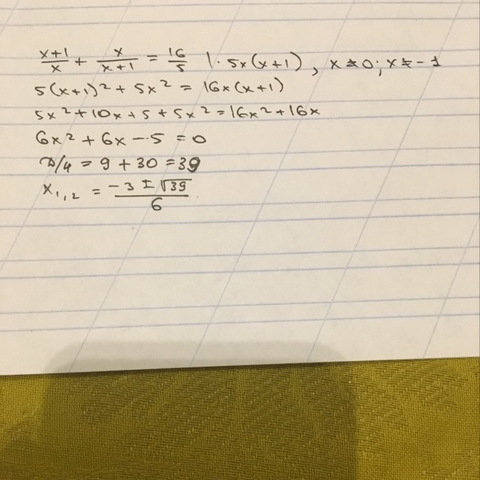 x+1/x + x/x+1 = 16/5 | · 5x(x+1), x≠0; x≠-1
5(x+1)² + 5x² = 16x(x+1)
5x² + 10x + 5 + 5x² = 16x² + 16x
6x² + 6x - 5 = 0
D/4 = 9 + 30 = 39
x₁,₂ = -3 ± √39/6